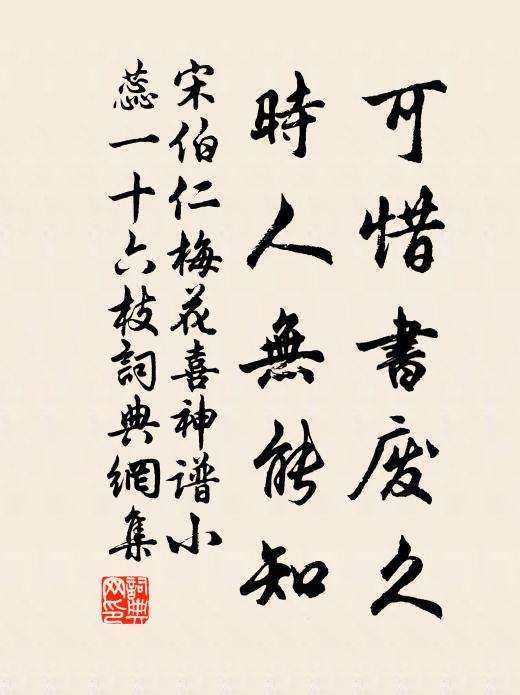 可惜書废久
時人無能知
宋伯仁梅花喜神谱小
蕊一十六枝詞典網集
詞典网印